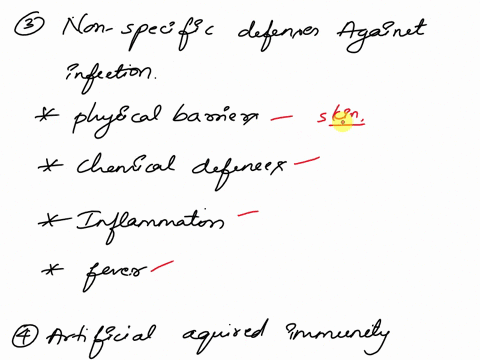 ③ Non-specific defenses Against
infection.
* physical barriers — skin.
* Chemical defences —
* Inflammation —
* fever —
④ Artificial aquired immunity